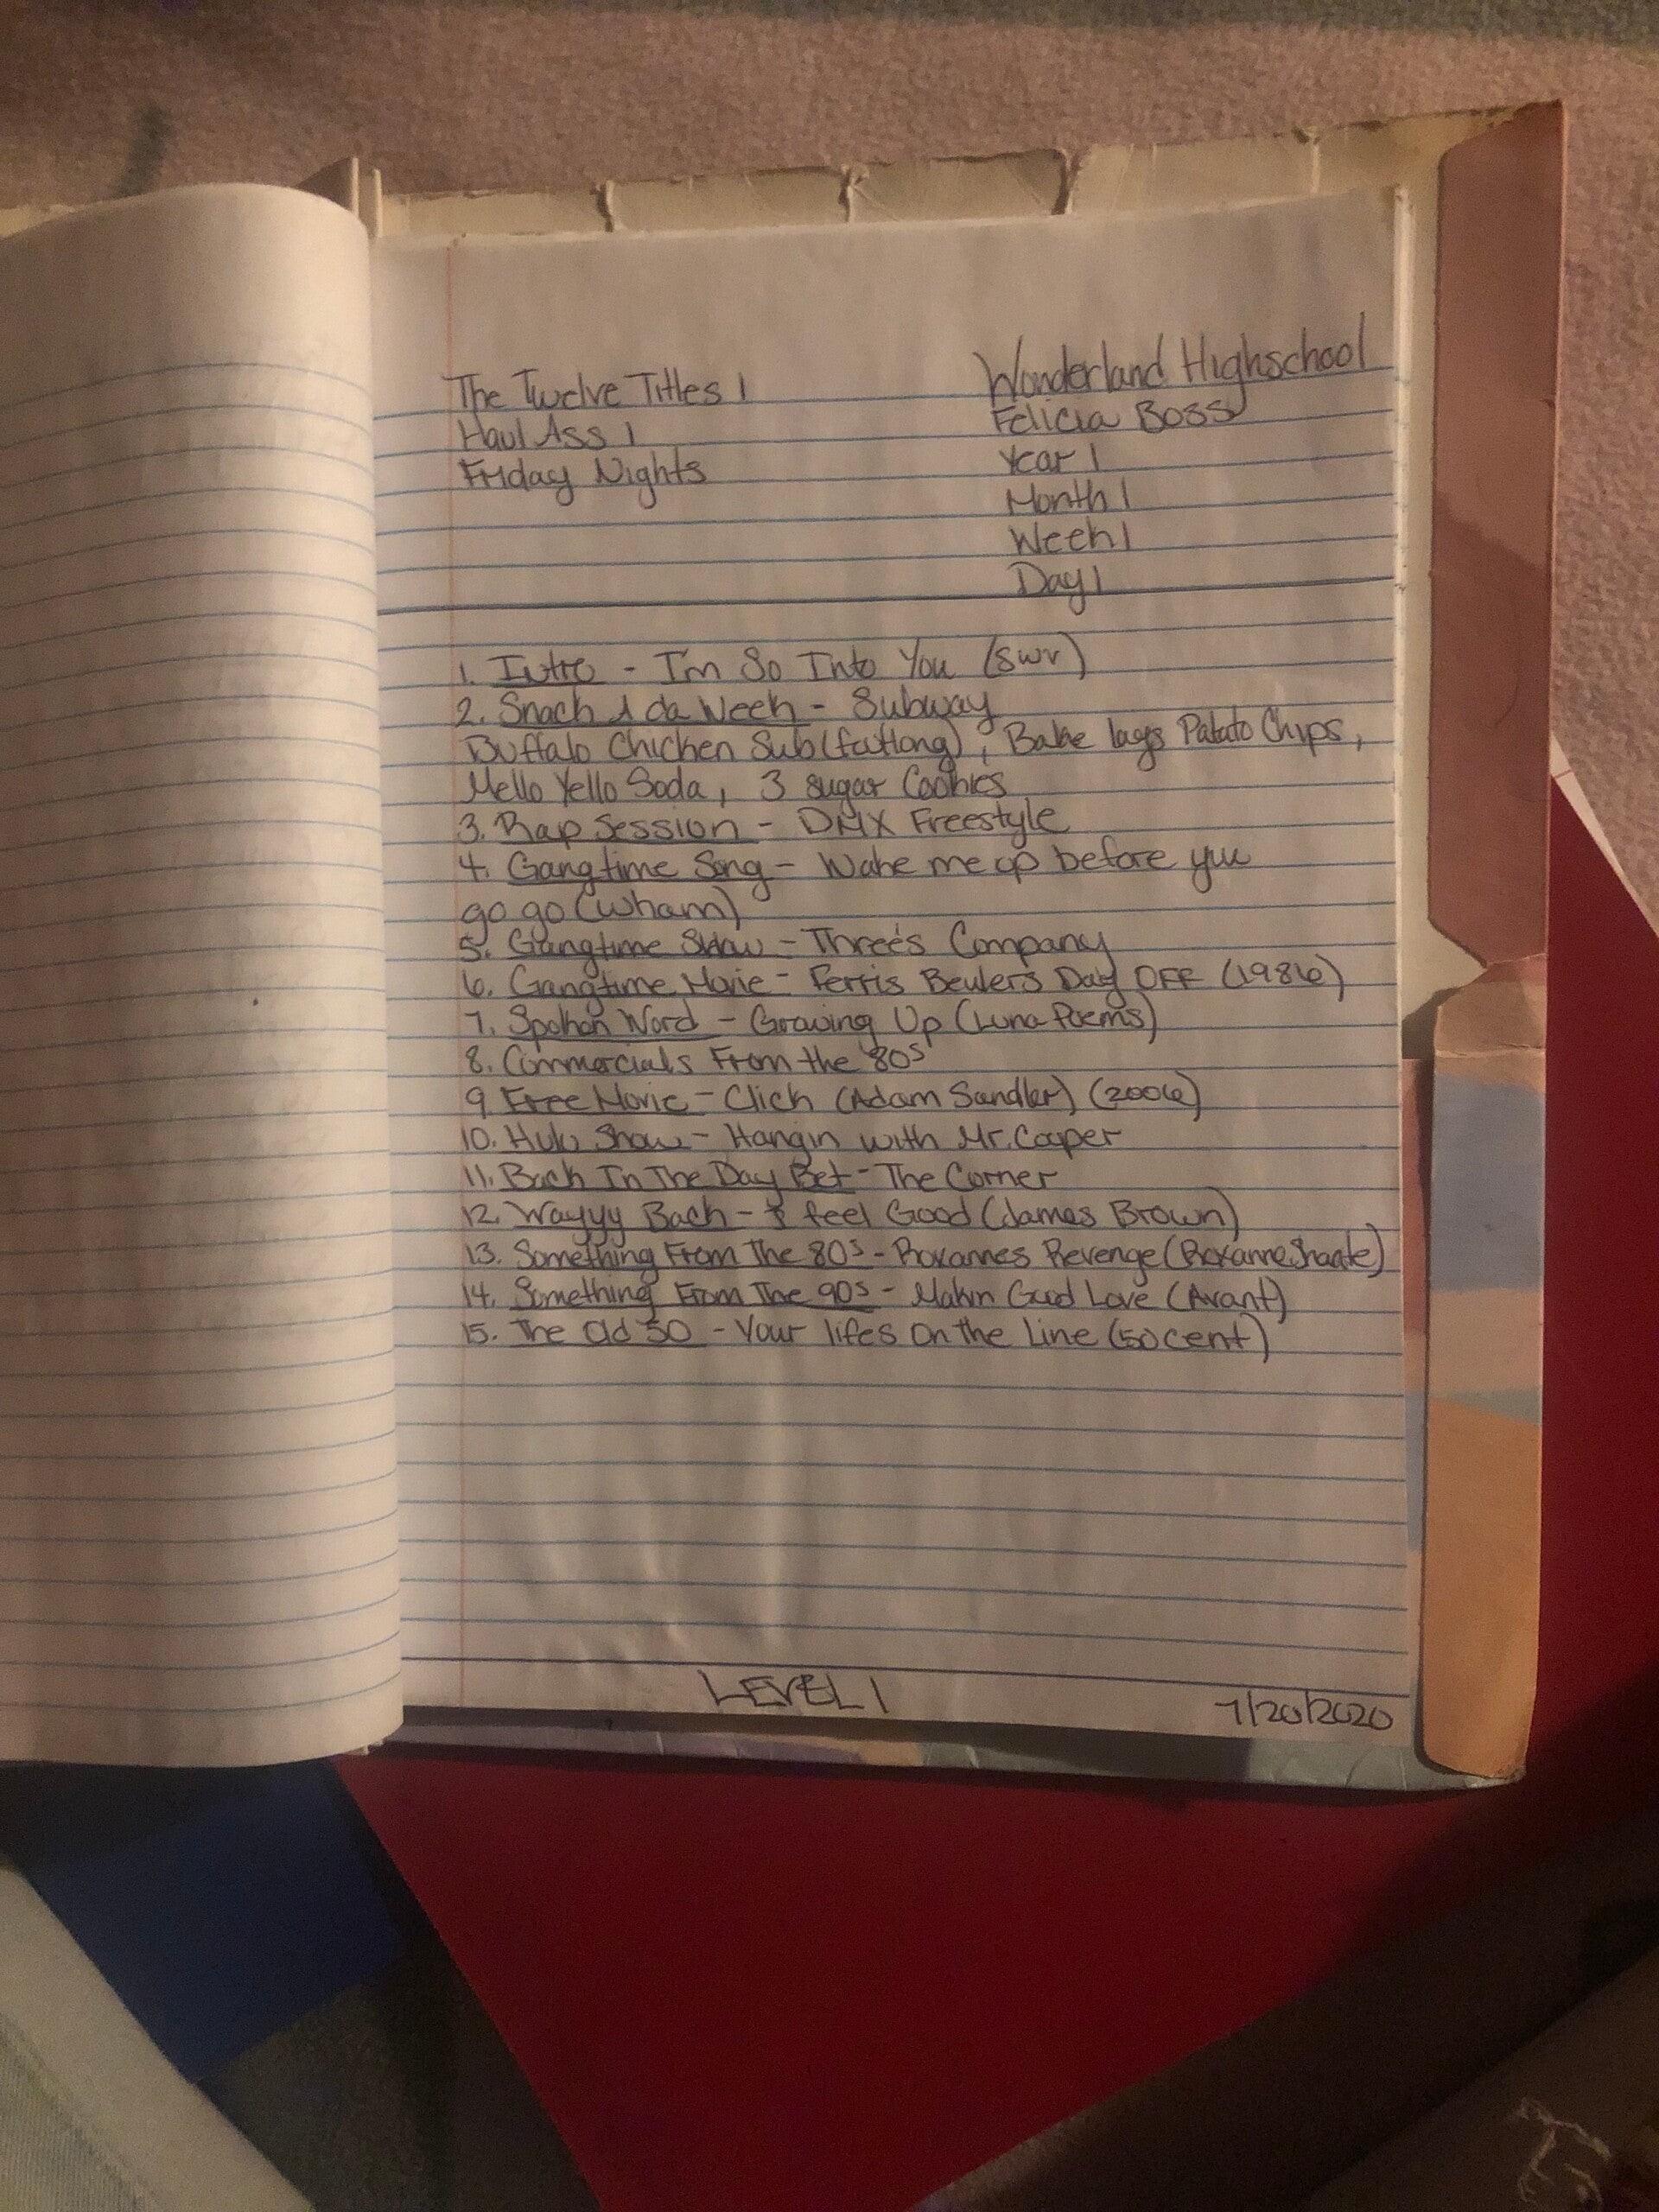 The Twelve Titles 1
Haul Ass 1
Friday Nights
Wonderland Highschool
Felicia Boss
Year 1
Month 1
Week 1
Day 1
1. Intro - I'm So Into You (SWV)
2. Snack A da Week - Subway
Buffalo Chicken Sub (footlong), Bake lays Potato Chips,
Mello Yello Soda, 3 sugar Cookies
3. Rap Session - DMX Freestyle
4. Gangtime Song - Wake me up before you
go go (Wham)
5. Gangtime Show - Three's Company
6. Gangtime Movie - Ferris Beulers Day OFF (1986)
7. Spoken Word - Growing Up (Luna Poems)
8. Commercials From the 80s
9. Free Movie - Click (Adam Sandler) (2006)
10. Hulu Show - Hangin with Mr. Cooper
11. Back In The Day Bet - The Corner
12. Wayyy Back - I feel Good (James Brown)
13. Something From The 80s - Roxannes Revenge (Roxanne Shante)
14. Something From The 90s - Makin Good Love (Avant)
15. The Old 50 - Your lifes On the Line (50 cent)
LEVEL 1
7/20/2020